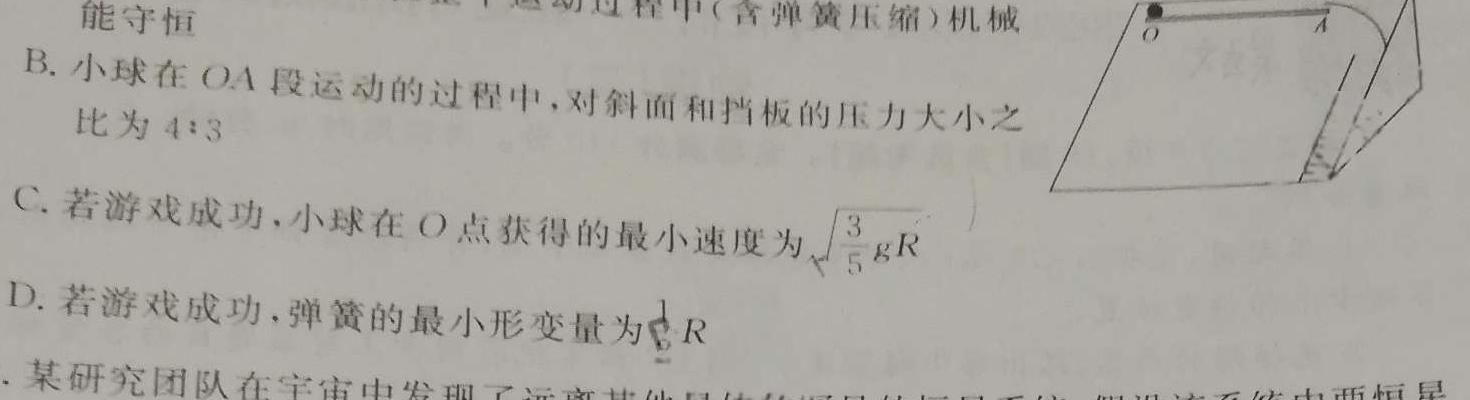 运动过程中(含弹簧压缩)机械
能守恒
B. 小球在 OA 段运动的过程中,对斜面和挡板的压力大小之
比为 4:3
C. 若游戏成功,小球在 O 点获得的最小速度为√(3/5 gR)
D. 若游戏成功,弹簧的最小形变量为 R
O
A
. 某研究团队在宇宙中发现了远离其他